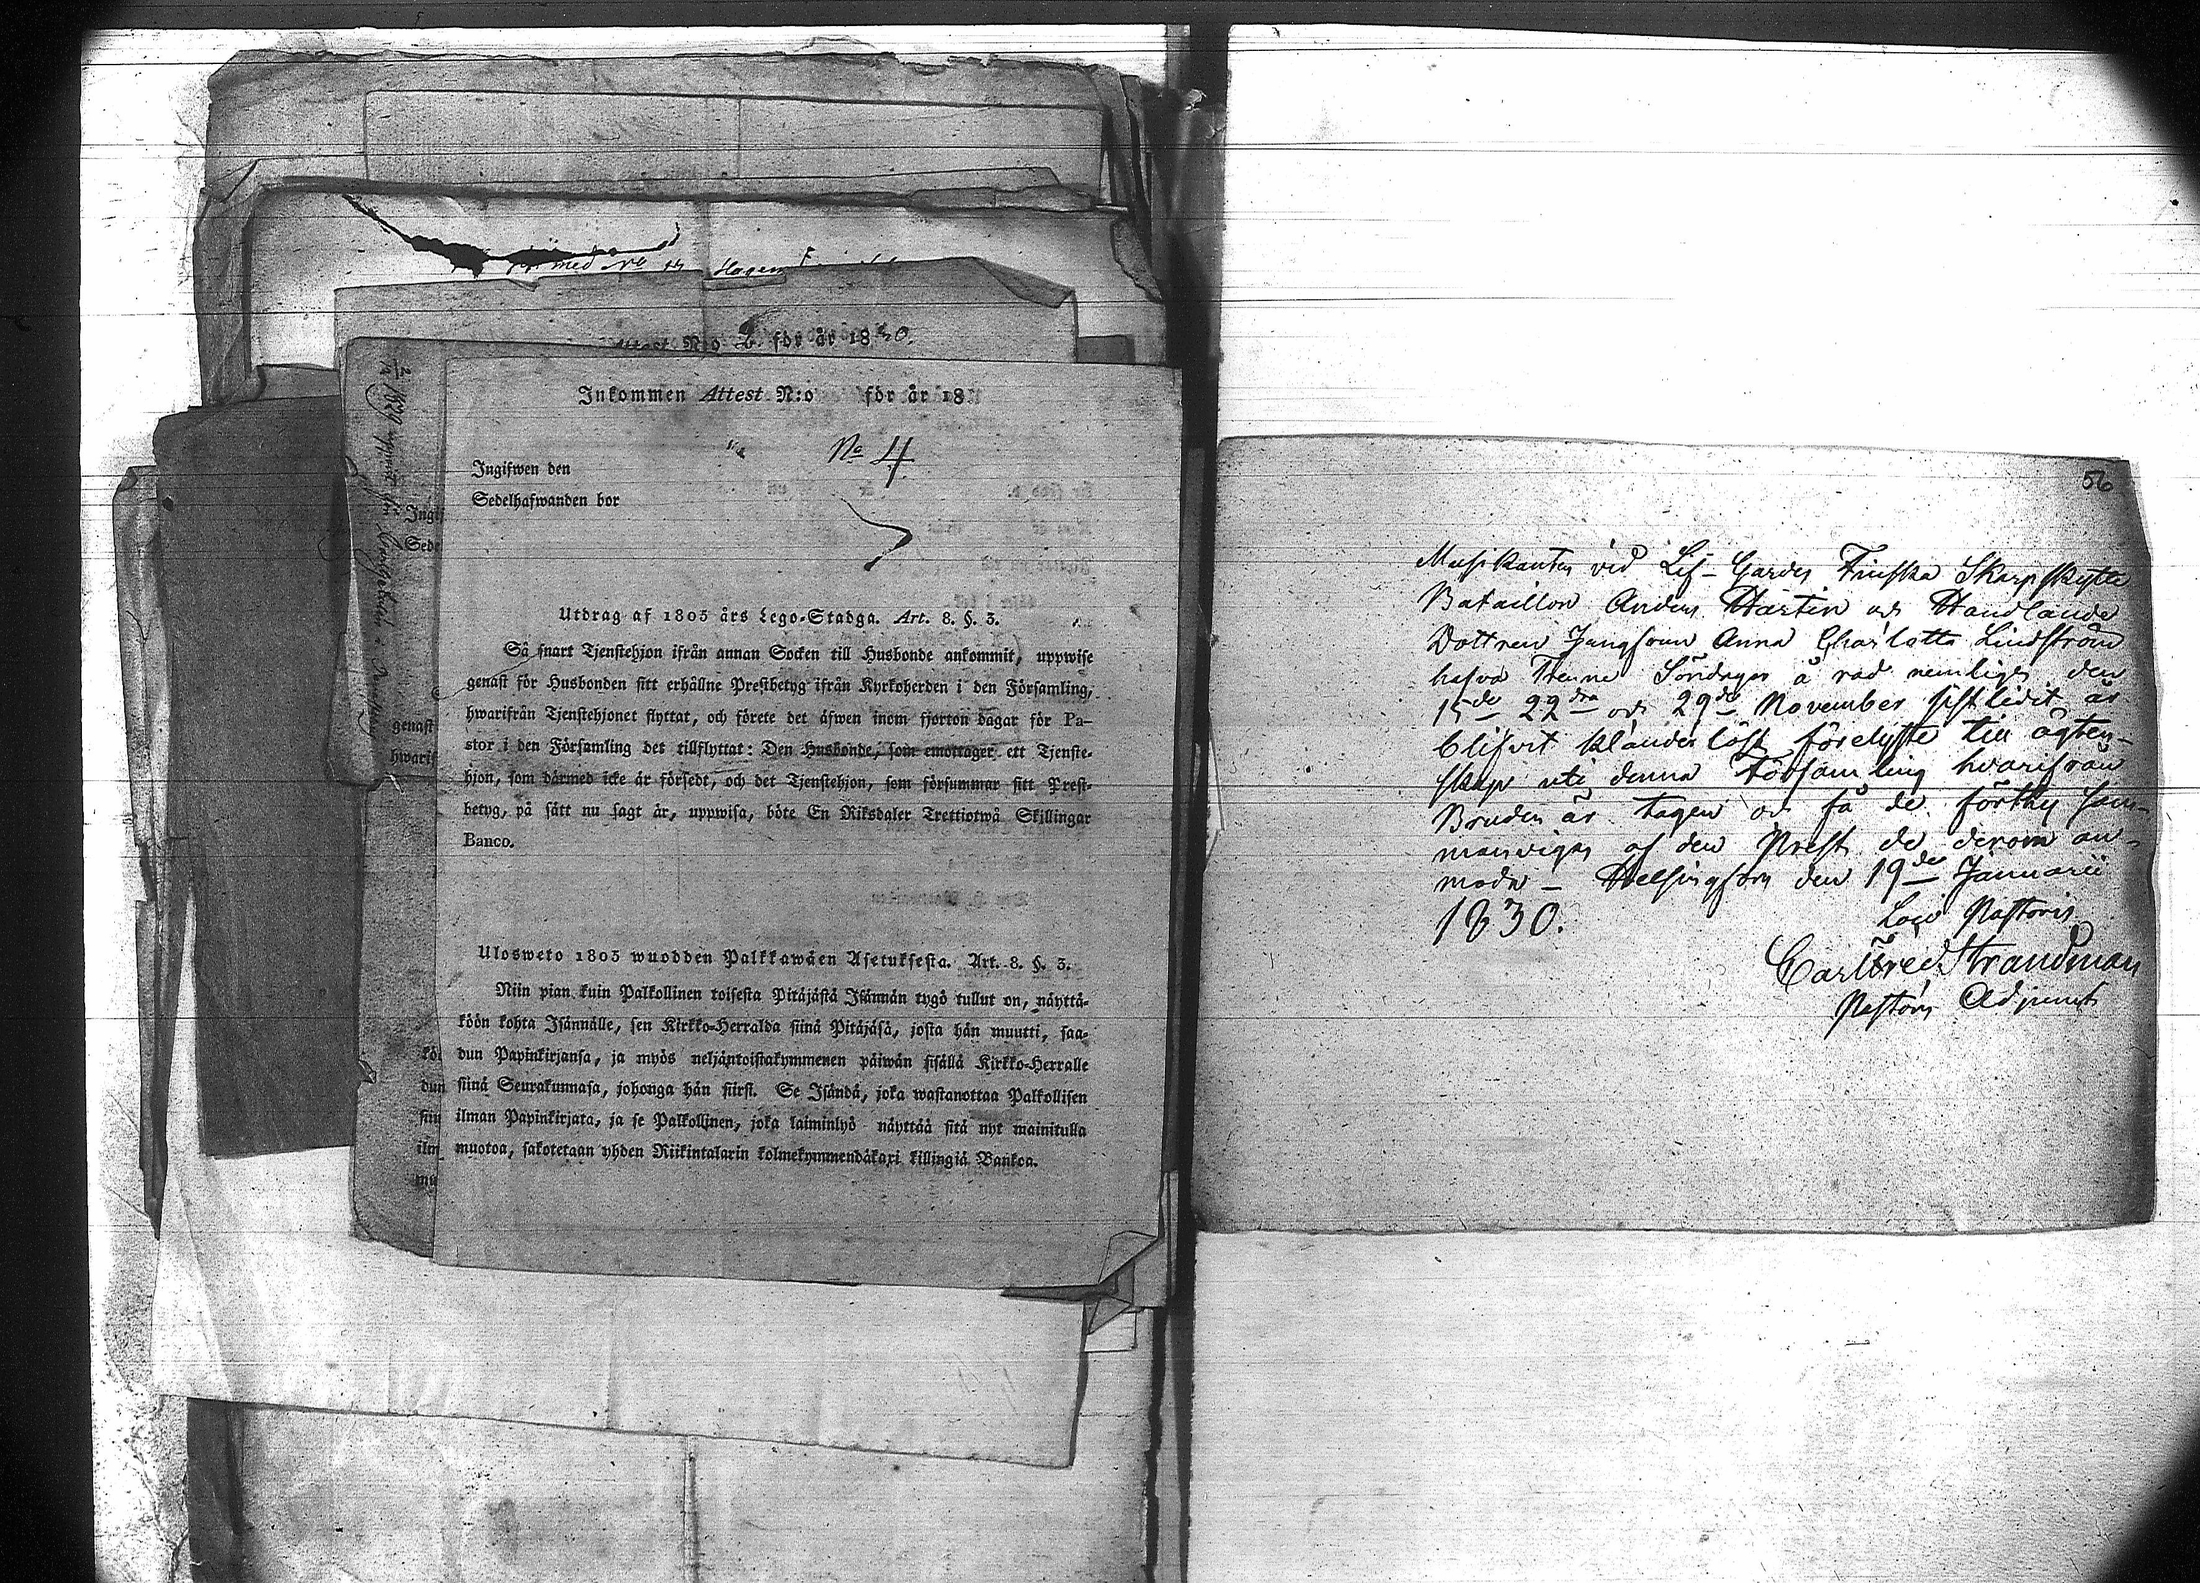 med No
Attest N:o 2. för år 1830.
Inkommen Attest N:o för år 18
No 4
Ingifwen den
Sedelhafwanden bor
Utdrag af 1805 års Lego-Stadga. Art. 8. §. 3.
Så snart Tjenstehjon ifrån annan Socken till Husbonde ankommit, uppwise
genast för Husbonden sitt erhållne Prestbetyg ifrån Kyrkoherden i den Församling,
hwarifrån Tjenstehjonet flyttat, och förete det äfwen inom fjorton dagar för Pa-
stor i den Församling det tillflyttat: Den Husbonde, som emottager ett Tjenste-
hjon, som därmed icke är försedt, och det Tjenstehjon, som försummar sitt Prest-
betyg, på sätt nu sagt är, uppwisa, böte En Riksdaler Trettiotwå Skillingar
Banco.
Ulosweto 1805 wuodden Palkkawäen Asetuksesta. Art. 8. §. 3.
Niin pian kuin Palkollinen toisesta Pitäjästä Isännän tygö tullut on, näyttä-
köön kohta Isännälle, sen Kirkko-Herralda siinä Pitäjäsä, josta hän muutti, saa-
dun Papinkirjansa, ja myös neljäntoistakymmenen päiwän sisällä Kirkko-Herralle
siinä Seurakunnasa, johonga hän siirsi. Se Isändä, joka wastanottaa Palkollisen
ilman Papinkirjata, ja se Palkollinen, joka laiminlyö näyttää sitä nyt mainitulla
muotoa, sakotetaan yhden Riikintalarin kolmekymmendäkaxi killingiä Bankoa.
Ingif
Sede
genast
hwarif
kö
dun
siin
ilm
mu
56
Musikanten vid Lif-Gardes Finska Skarpskytte
Bataillon Anders Hästén och Handlande
Dottren Jungfrun Anna Charlotta Lindström
hafva Trenne Söndagar å rad nemligen den
15de 22dra och 29de November sistledit år
blifvit klanderlöst förelyste till ägten-
skap uti denna Församling hvarifrån
Bruden är tagen och få de förthy sam-
manvigas af den Prest de derom an-
moda – Helsingfors den 19de Januarii
1830.
Loco Pastoris
Carl Fred Strandman
Pastors Adjunct